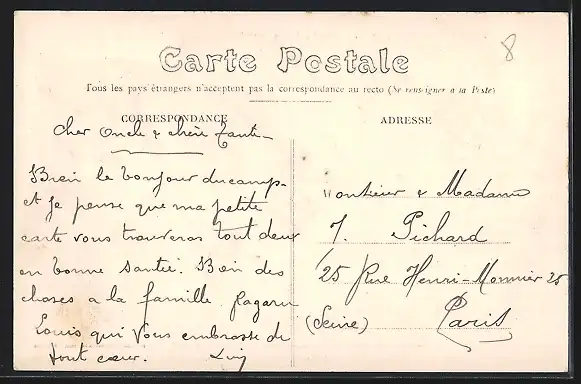 8
Carte Postale
Tous les pays étrangers n'acceptent pas la correspondance au recto (Se renseigner à la Poste)
CORRESPONDANCE
ADRESSE
Cher Oncle & chère Tante
Bien le bonjour du camp
et je pense que ma petite
carte vous trouveras tout deux
en bonne santée. Bien des
choses a la famille
Louis qui vous embrasse de
tout cœur.
Monsieur & Madame
J. Pichard
25 Rue Henri-Monnier 25
(Seine) Paris